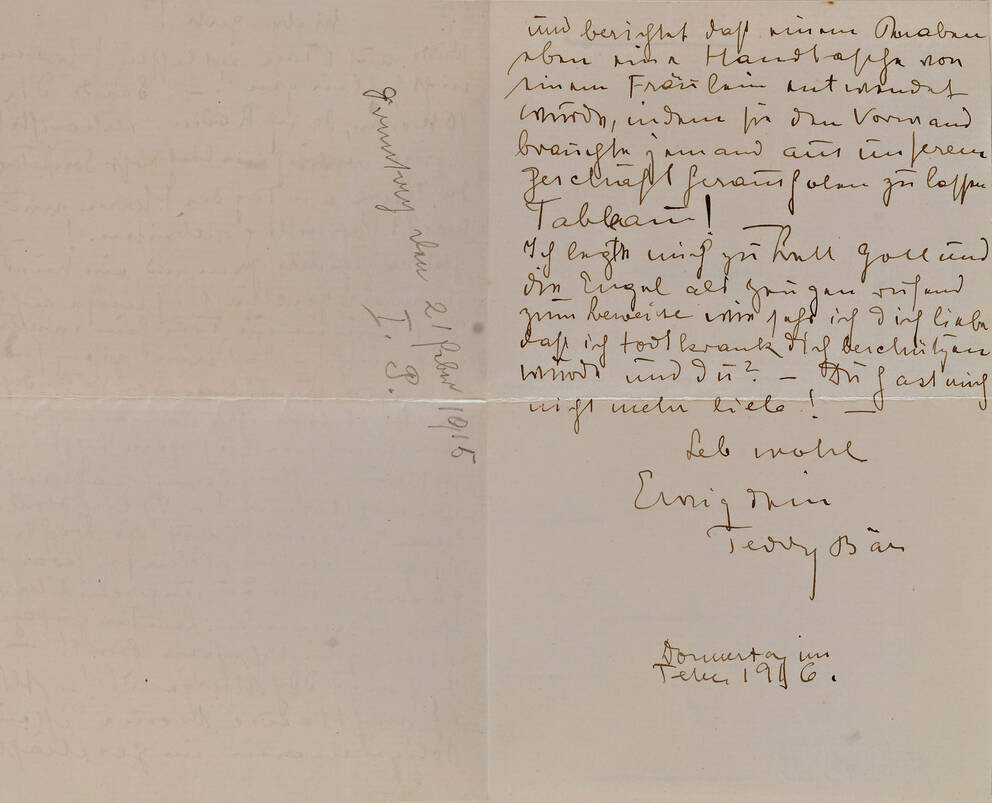 und berichtet daß einem Knaben
eben eine Handtasche von
einem Fräulein entwendet
wurde, indem sie den Vorwand
brauchte jemand aus unserem
Geschäft herausholen zu lassen
Tableau!
Ich legte mich zu Bett Gott und
die Engel als Zeugen rufend
zum Beweise wie sehr ich dich liebe
daß ich todtkrank dich beschützen
würde und du? – Du hast mich
nicht mehr lieb! –
Leb wohl
Ewig dein
Teddy Bär
Donnertag im
Feber 1916.
den 21 Feber 1915